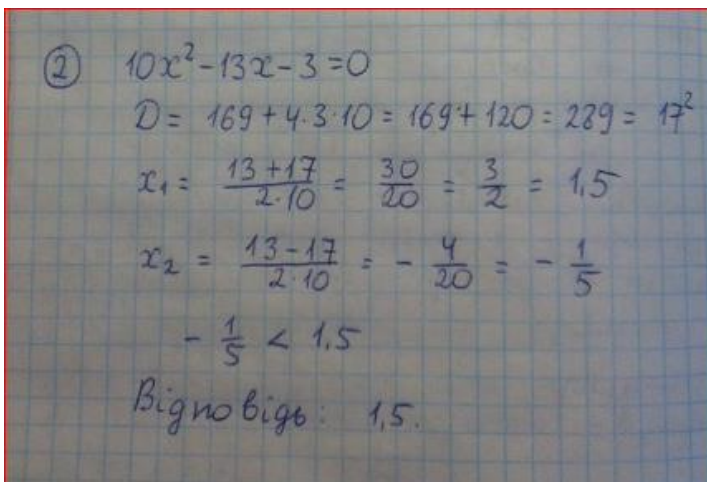 ② 10x² - 13x - 3 = 0
D = 169 + 4·3·10 = 169 + 120 = 289 = 17²
x₁ = (13 + 17)/(2·10) = 30/20 = 3/2 = 1,5
x₂ = (13 - 17)/(2·10) = - 4/20 = - 1/5
- 1/5 < 1,5
Відповідь: 1,5.